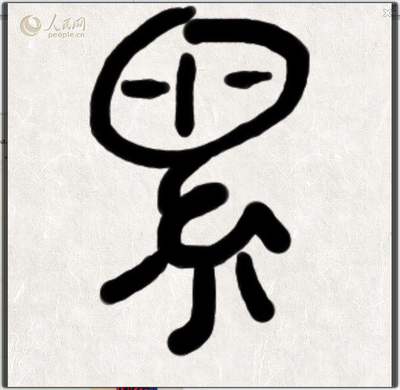 人民网
people.cn
累